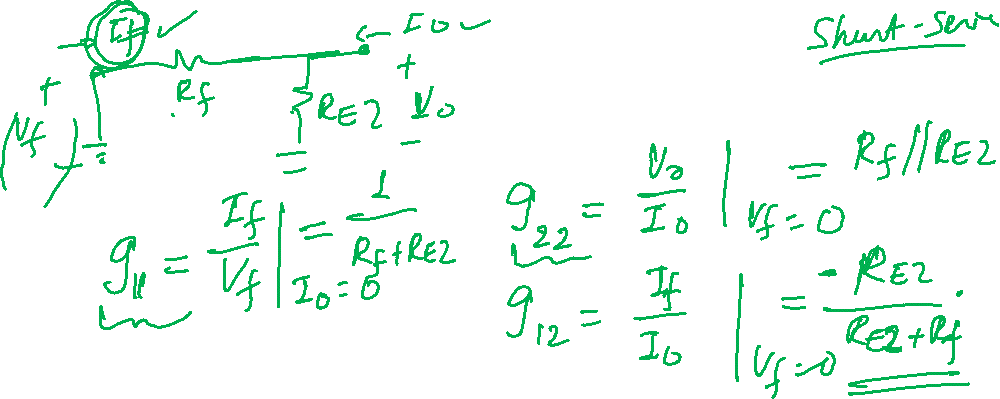 If ✓ ← Io ✓ Shunt-Serie
+ Rf +
Vf RE2 Vo
−
g11 = If/Vf | Io=0 = 1/(Rf+RE2)
g22 = Vo/Io | Vf=0 = Rf//RE2
g12 = If/Io | Vf=0 = -RE2/(RE2+Rf).